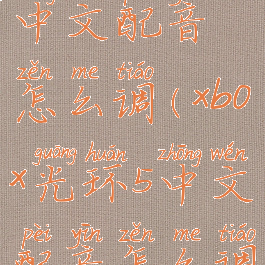 中文配音
zěn me tiáo
怎么调(xbo
guāng huán zhōng wén
x光环5中文
pèi yīn zěn me tiáo
配音怎么调